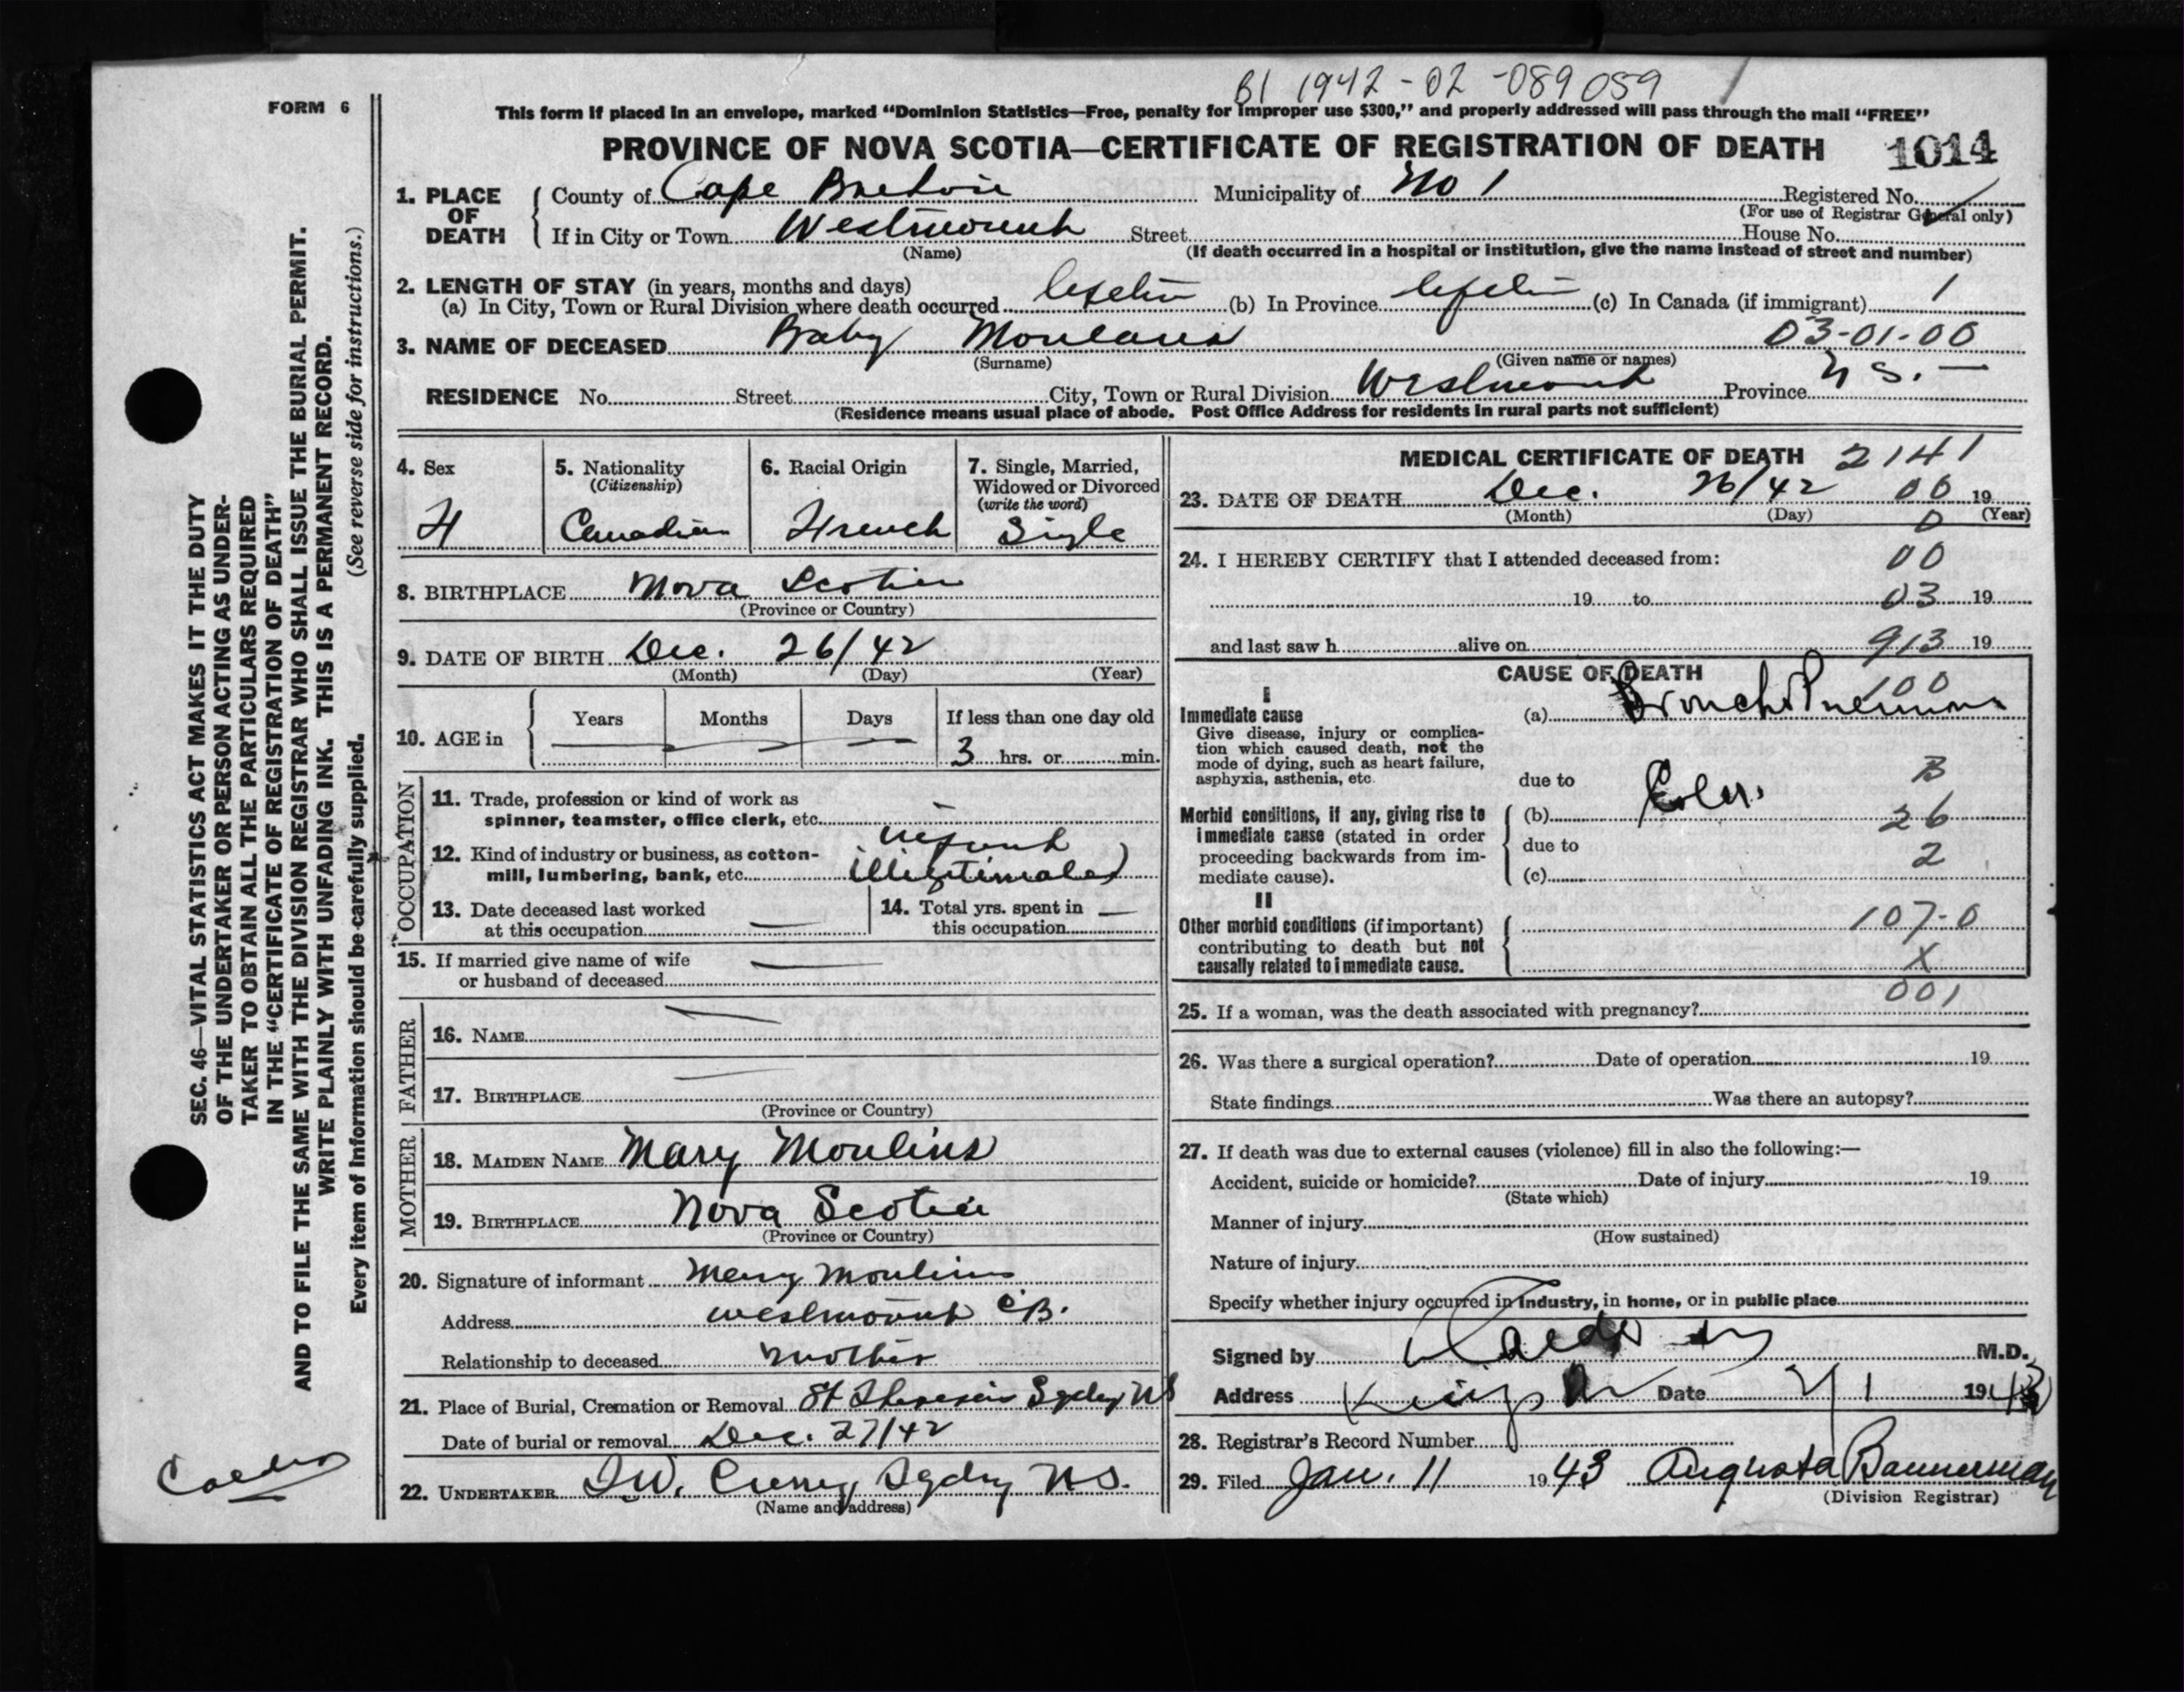 B1 1942-02-089059
FORM 6
This form if placed in an envelope, marked “Dominion Statistics—Free, penalty for improper use $300,” and properly addressed will pass through the mail “FREE”
PROVINCE OF NOVA SCOTIA—CERTIFICATE OF REGISTRATION OF DEATH 1014
1. PLACE OF DEATH
County of Cape Breton Municipality of No 1 Registered No.
(For use of Registrar General only)
If in City or Town Westmount Street House No.
(Name) (If death occurred in a hospital or institution, give the name instead of street and number)
2. LENGTH OF STAY (in years, months and days)
(a) In City, Town or Rural Division where death occurred (b) In Province (c) In Canada (if immigrant) 1
3. NAME OF DECEASED Baby 03-01-00
(Surname) (Given name or names)
RESIDENCE No. Street City, Town or Rural Division Westmount Province N S. —
(Residence means usual place of abode. Post Office Address for residents in rural parts not sufficient)
4. Sex
5. Nationality
(Citizenship)
Canadian
6. Racial Origin
French
7. Single, Married,
Widowed or Divorced
(write the word)
Single
8. BIRTHPLACE Nova Scotia
(Province or Country)
9. DATE OF BIRTH Dec. 26/42
(Month) (Day) (Year)
10. AGE in
Years Months Days If less than one day old
3 hrs. or min.
OCCUPATION
11. Trade, profession or kind of work as
spinner, teamster, office clerk, etc.
infant
12. Kind of industry or business, as cotton-
mill, lumbering, bank, etc. illigtimate)
13. Date deceased last worked
at this occupation
14. Total yrs. spent in
this occupation
15. If married give name of wife
or husband of deceased
FATHER
16. NAME
17. BIRTHPLACE
(Province or Country)
MOTHER
18. MAIDEN NAME Mary Moulins
19. BIRTHPLACE Nova Scotia
(Province or Country)
20. Signature of informant Mary Moulins
Address Westmount C.B.
Relationship to deceased mother
21. Place of Burial, Cremation or Removal St Theresa's Sydney NS
Date of burial or removal Dec. 27/42
22. UNDERTAKER Sydney N S.
(Name and address)
MEDICAL CERTIFICATE OF DEATH 2141
23. DATE OF DEATH Dec. 26/42 00 19
(Month) (Day) (Year)
0
24. I HEREBY CERTIFY that I attended deceased from: 00
19 to 03 19
and last saw h alive on 913 19
CAUSE OF DEATH
100
I
Immediate cause
Give disease, injury or complica-
tion which caused death, not the
mode of dying, such as heart failure,
asphyxia, asthenia, etc.
(a) Broncho Pneumonia
due to B
Morbid conditions, if any, giving rise to
immediate cause (stated in order
proceeding backwards from im-
mediate cause).
(b) 26
due to 2
(c)
II
Other morbid conditions (if important)
contributing to death but not
causally related to immediate cause.
107-0
X
001
25. If a woman, was the death associated with pregnancy?
26. Was there a surgical operation? Date of operation 19
State findings Was there an autopsy?
27. If death was due to external causes (violence) fill in also the following:—
Accident, suicide or homicide? Date of injury 19
(State which)
Manner of injury
(How sustained)
Nature of injury
Specify whether injury occurred in industry, in home, or in public place
Signed by M.D.
Address Date 1943
28. Registrar's Record Number
29. Filed Jan. 11 1943 Augusta Bannerman
(Division Registrar)
SEC. 46—VITAL STATISTICS ACT MAKES IT THE DUTY
OF THE UNDERTAKER OR PERSON ACTING AS UNDER-
TAKER TO OBTAIN ALL THE PARTICULARS REQUIRED
IN THE “CERTIFICATE OF REGISTRATION OF DEATH”
AND TO FILE THE SAME WITH THE DIVISION REGISTRAR WHO SHALL ISSUE THE BURIAL PERMIT.
WRITE PLAINLY WITH UNFADING INK. THIS IS A PERMANENT RECORD.
Every item of information should be carefully supplied. (See reverse side for instructions.)